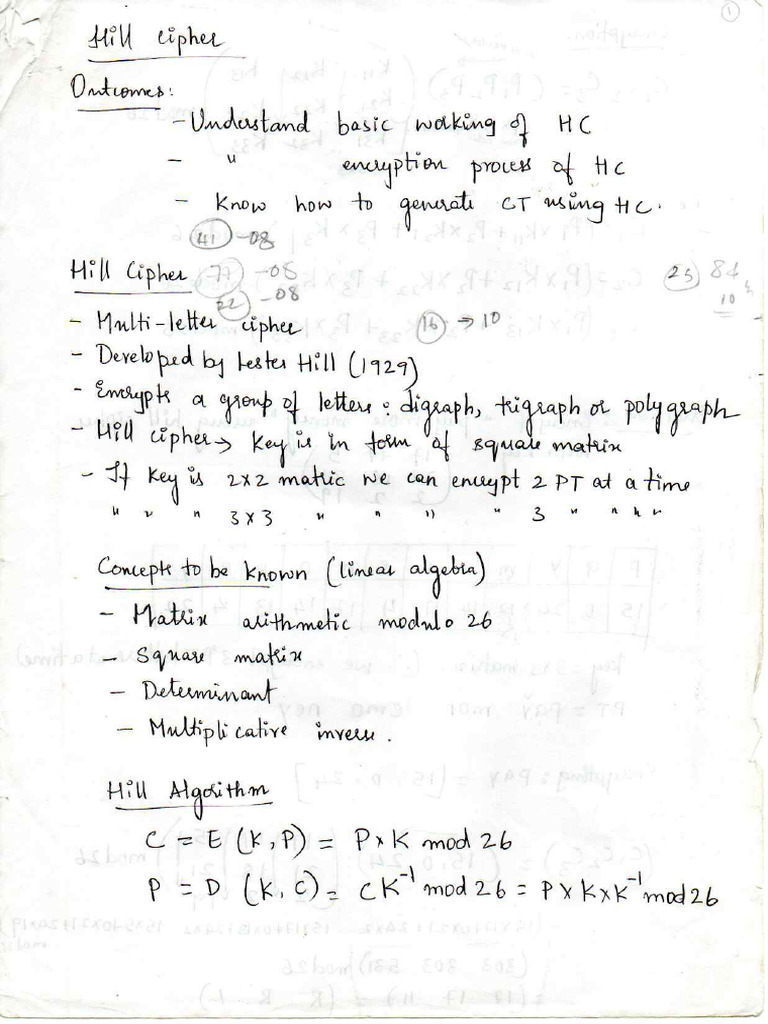 1
Hill Cipher
Outcomes:
- Understand basic working of HC
- " encryption process of HC
- Know how to generate CT using HC.
41 -08
Hill Cipher 77 -08
22 -08
25 84
10
- Multi-letter cipher 16 → 10
- Developed by Lester Hill (1929)
- Encrypts a group of letters: digraph, trigraph or polygraph
- Hill cipher → Key is in form of square matrix
- If Key is 2x2 matric we can encrypt 2 PT at a time
" " " 3x3 " " " " 3 " " " "
Concepts to be known (linear algebra)
- Matrix arithmetic modulo 26
- Square matrix
- Determinant
- Multiplicative inverse.
Hill Algorithm
C = E (K, P) = P x K mod 26
P = D (K, C) = C K⁻¹ mod 26 = P x K x K⁻¹ mod 26